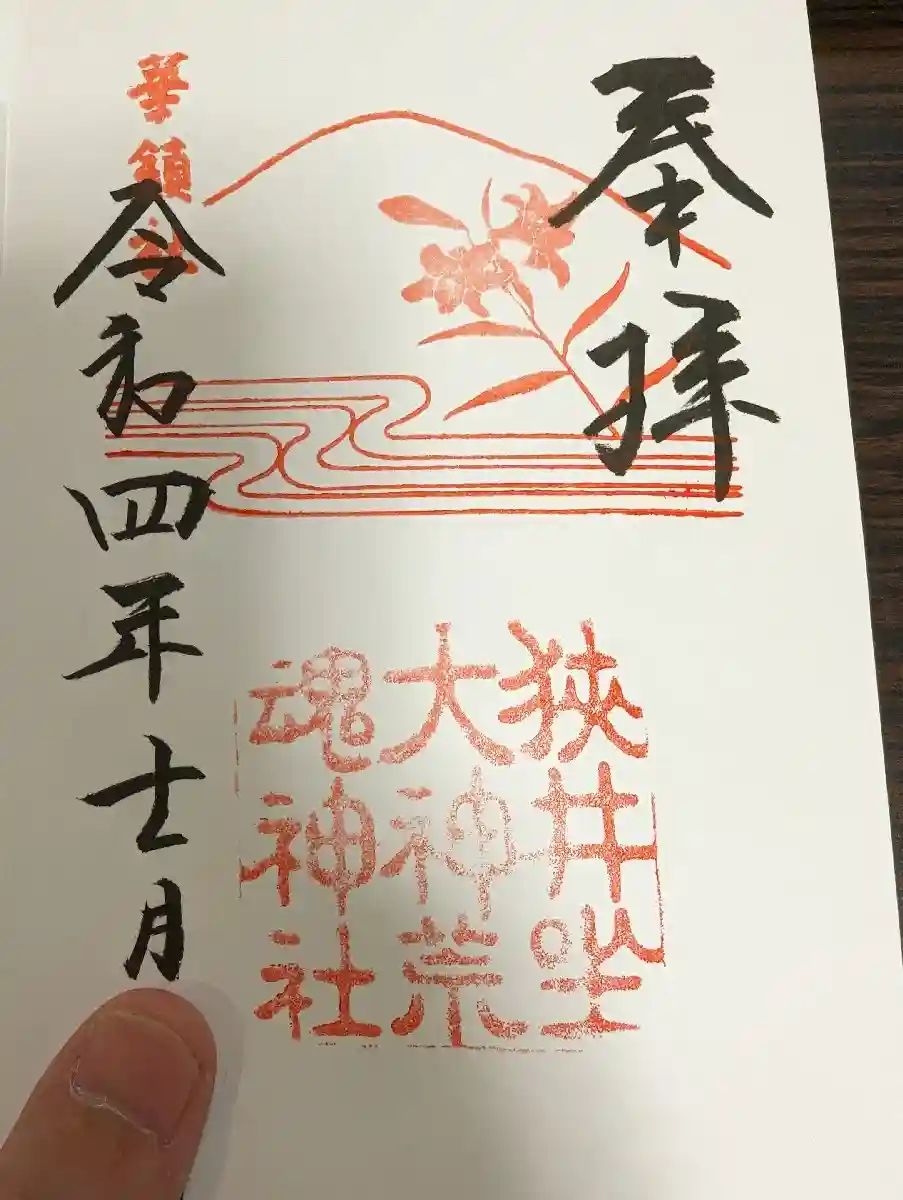 奉拝
狭井坐
大神荒
魂神社
華鎮社
令和四年十二月